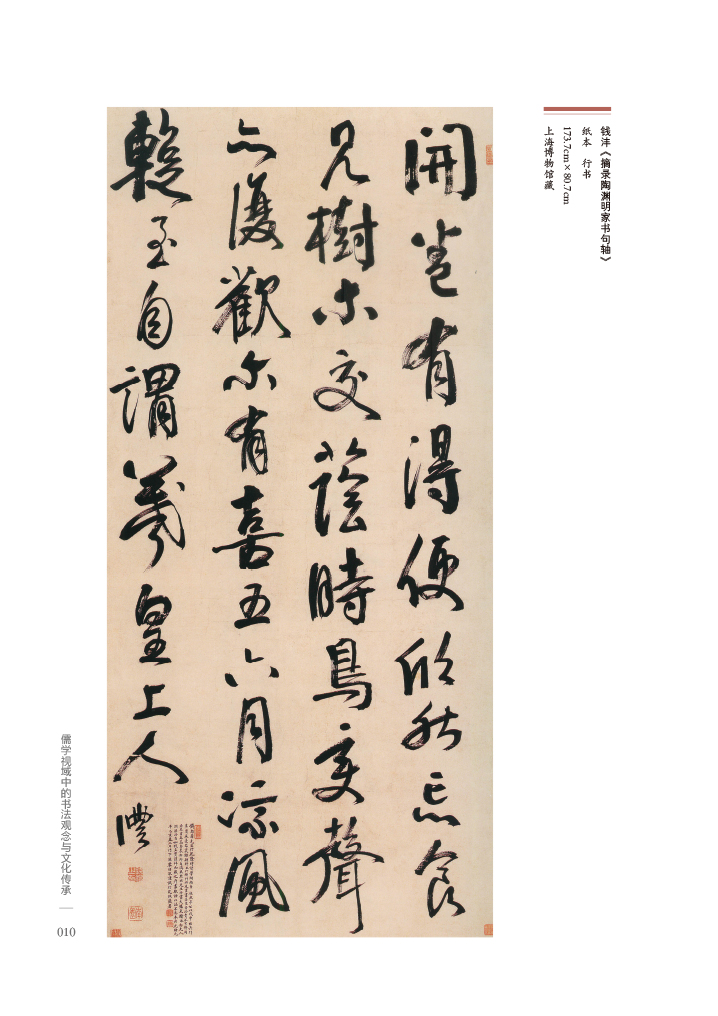 钱沣《摘录陶渊明家书句轴》
纸本 行书
173.7cm×80.7cm
上海博物馆藏
開卷有得便欣然忘食
見樹木交蔭時鳥變聲
亦復歡尓有喜五六月涼風
蹔至自謂羲皇上人 灃
儒学视域中的书法观念与文化传承
010